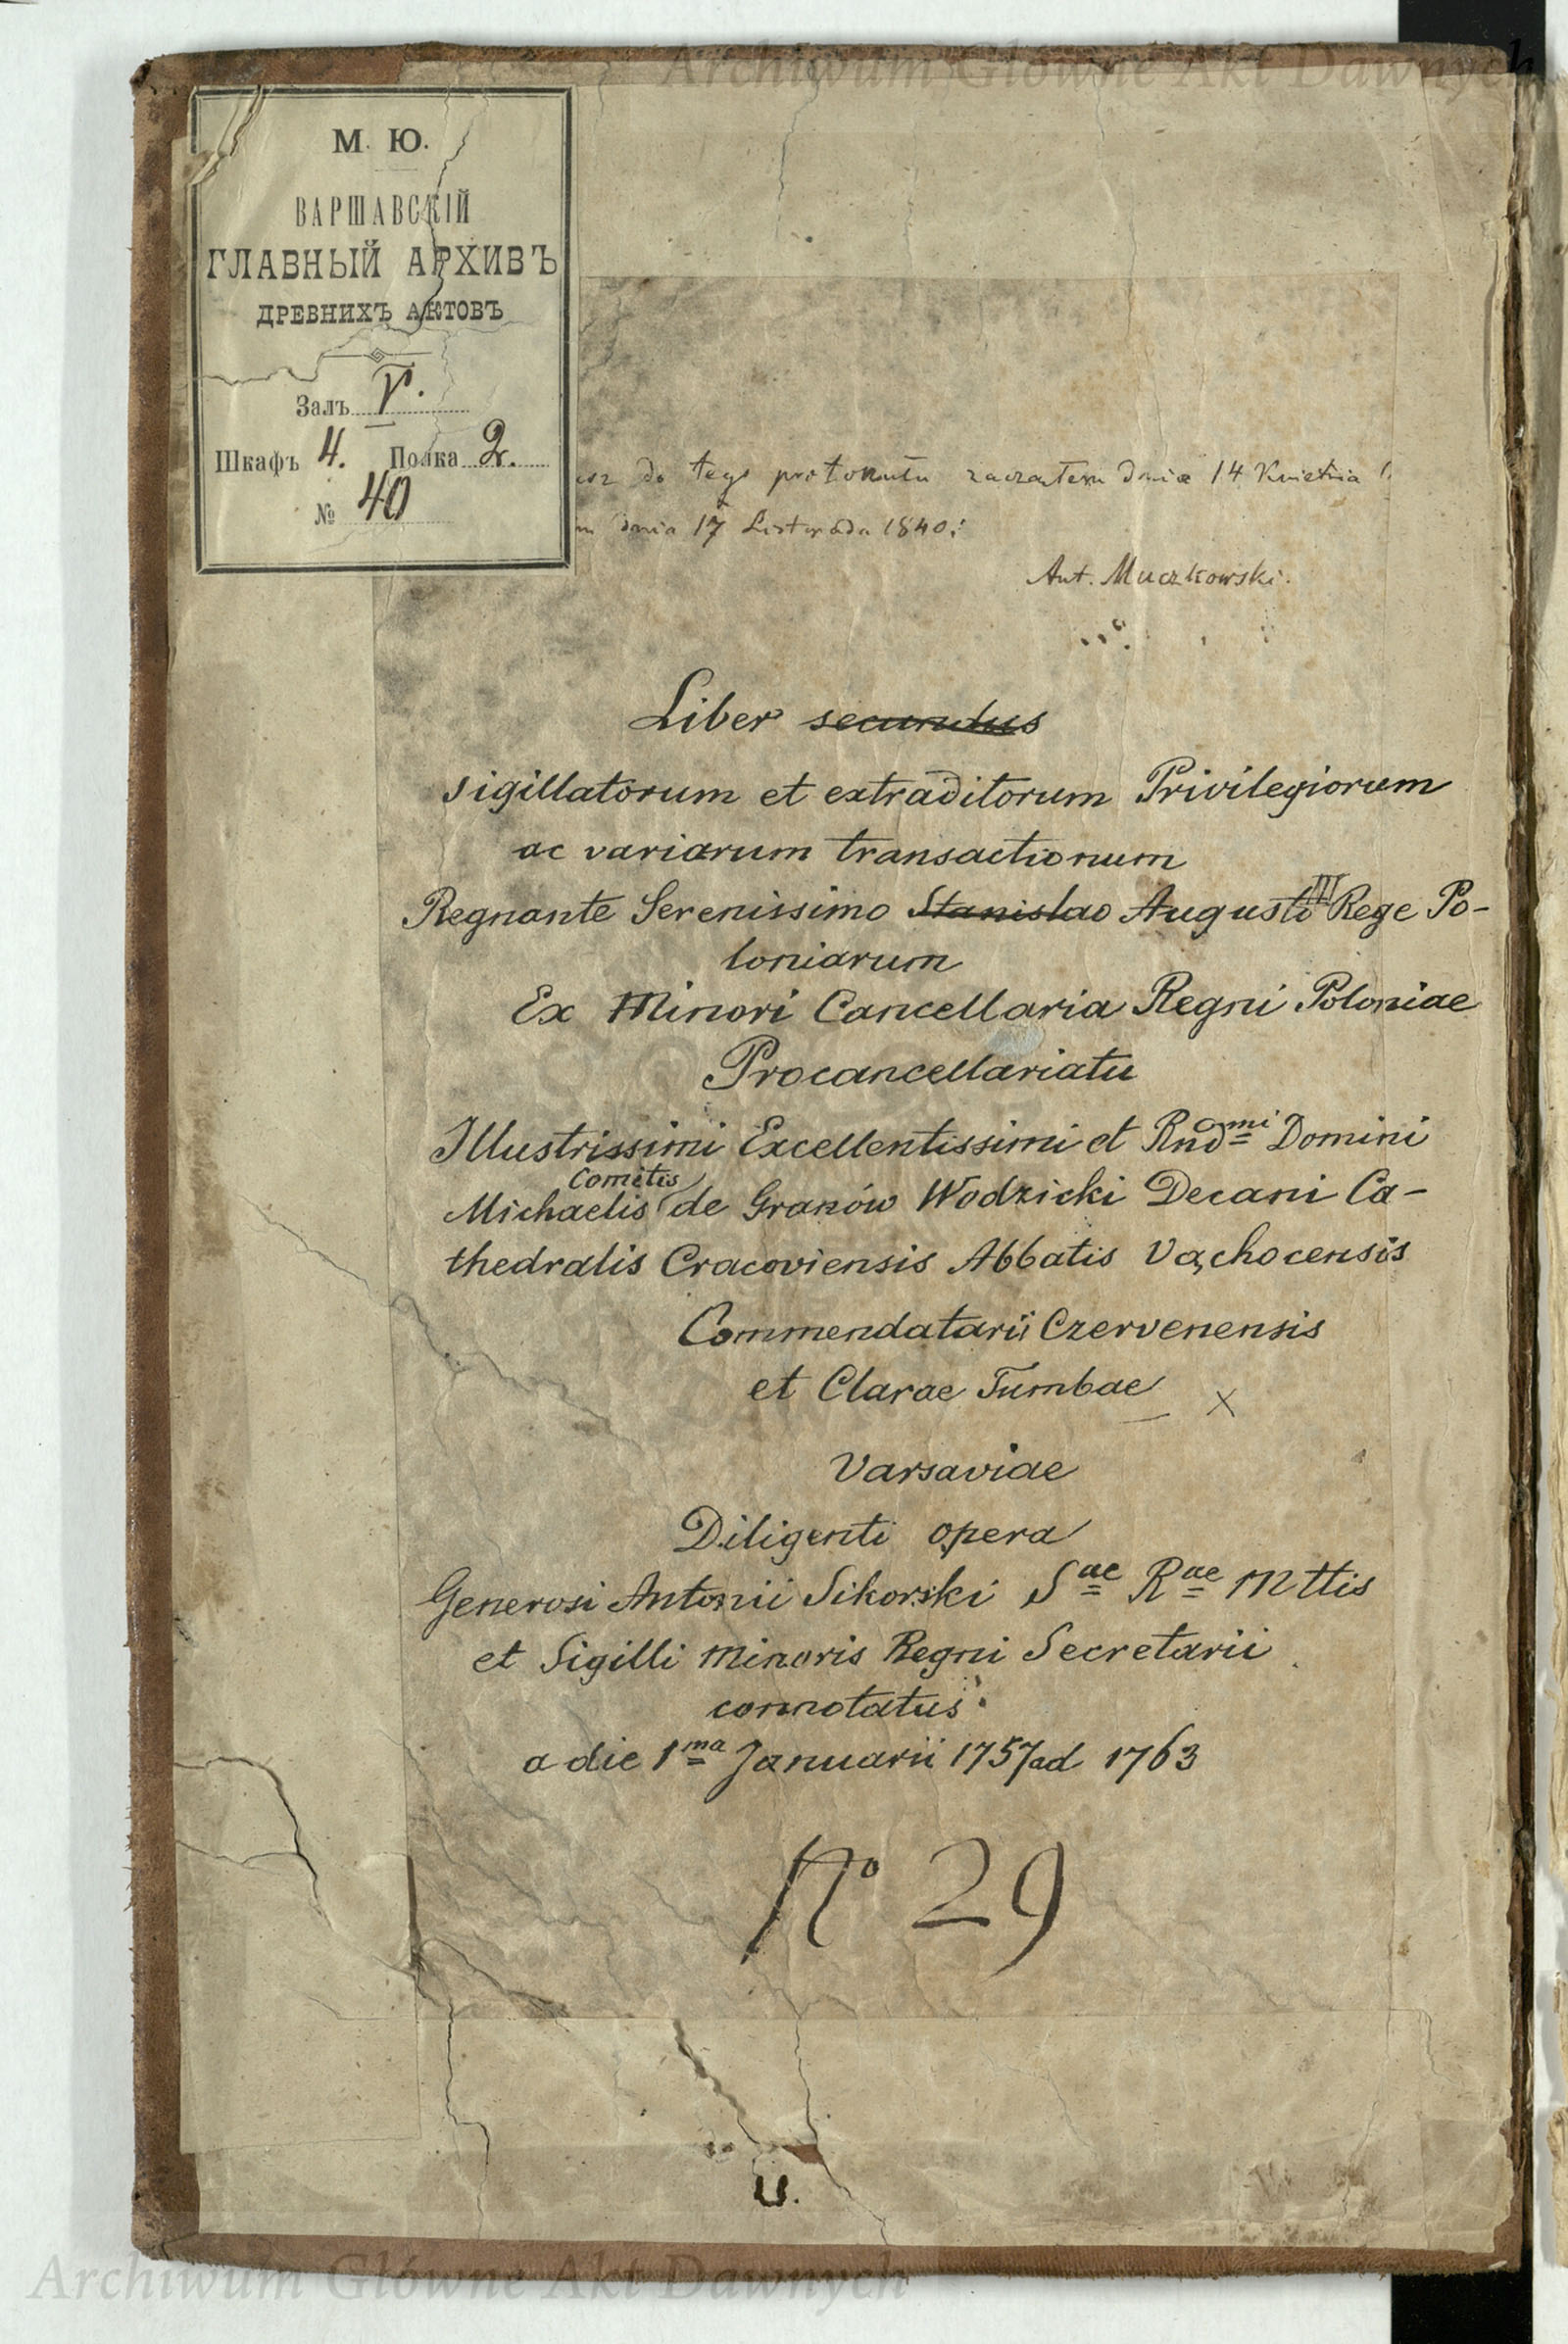 Archiwum Główne Akt Dawnych
М. Ю.
ВАРШАВСКІЙ
ГЛАВНЫЙ АРХИВЪ
ДРЕВНИХЪ АКТОВЪ
Залъ V.
Шкафъ 4. Полка 2.
№ 40
do tego protokułu zacząłem dnia 14 Kwietnia
dnia 17 Listopada 1840.
Ant. Muczkowski.
Liber secundus
sigillatorum et extraditorum Privilegiorum
ac variarum transactionum
Regnante Serenissimo Stanislao Augusto III Rege Po-
loniarum
Ex Minori Cancellaria Regni Poloniae
Procancellariatu
Illustrissimi Excellentissimi et Rndmi Domini
Comitis
Michaelis de Granów Wodzicki Decani Ca-
thedralis Cracoviensis Abbatis Vąchocensis
Commendatarii Czervenensis
et Clarae Tumbae X
Varsaviae
Diligenti opera
Generosi Antonii Sikorski Sae Rae Mttis
et Sigilli Minoris Regni Secretarii
connotatus
a die 1ma Januarii 1757 ad 1763
No 29
U.
Archiwum Główne Akt Dawnych